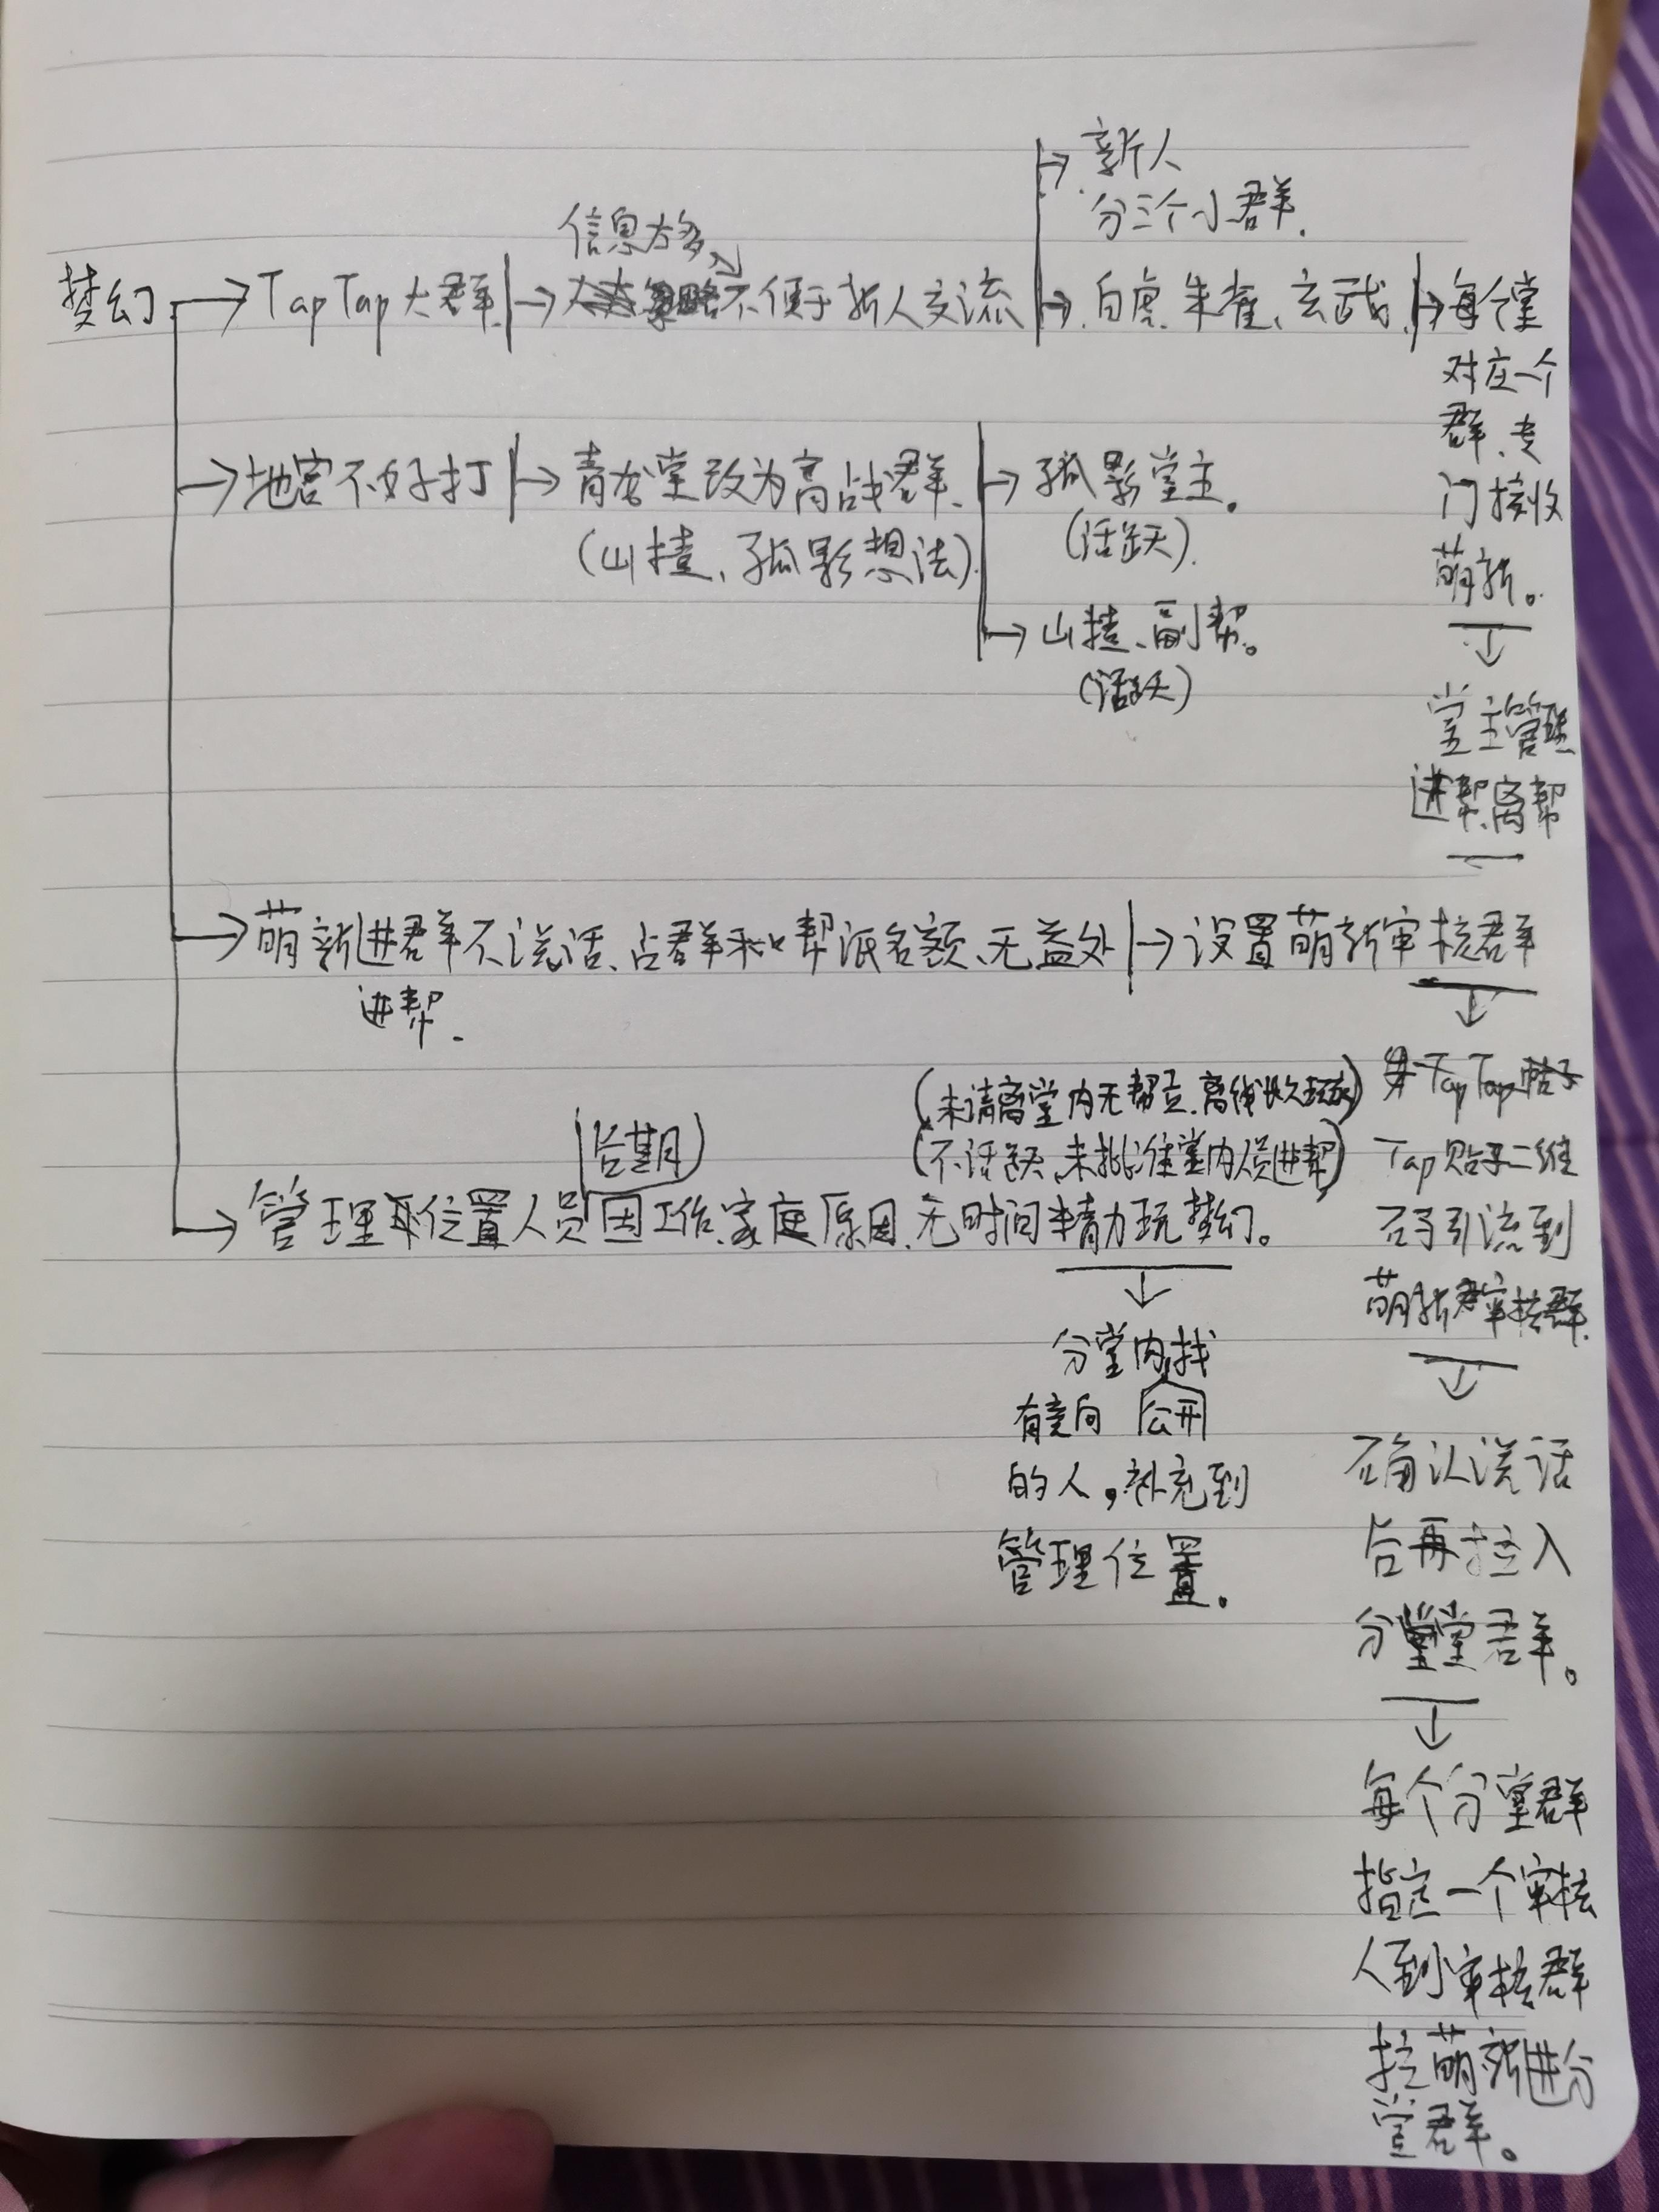 新人
分三个小群.
信息太多、
梦幻 TapTap大群 不便于新人交流 白虎、朱雀、玄武、 每个堂
对应一个
群、专
门接收
萌新。
堂主管理
进帮、离帮
地宫不好打 青龙堂改为高战群、 孤影堂主。
(山揸、孤影想法) (活跃).
山揸、副帮。
(活跃)
萌新进群不说话、占群和帮派名额、无益处 设置萌新审核群
进帮.
Tap贴子二维
码引流到
萌新审核群.
确认说话
后再拉入
分堂群。
每个分堂群
指定一个审核
人到审核群
拉萌新进分
堂群。
(未请离堂内无帮贡、离线久玩家)
(后期) (不活跃、未批准堂内人员进帮)
管理位置人员因工作、家庭原因、无时间精力玩梦幻。
分堂内找
有意向 公开
的人，补充到
管理位置。